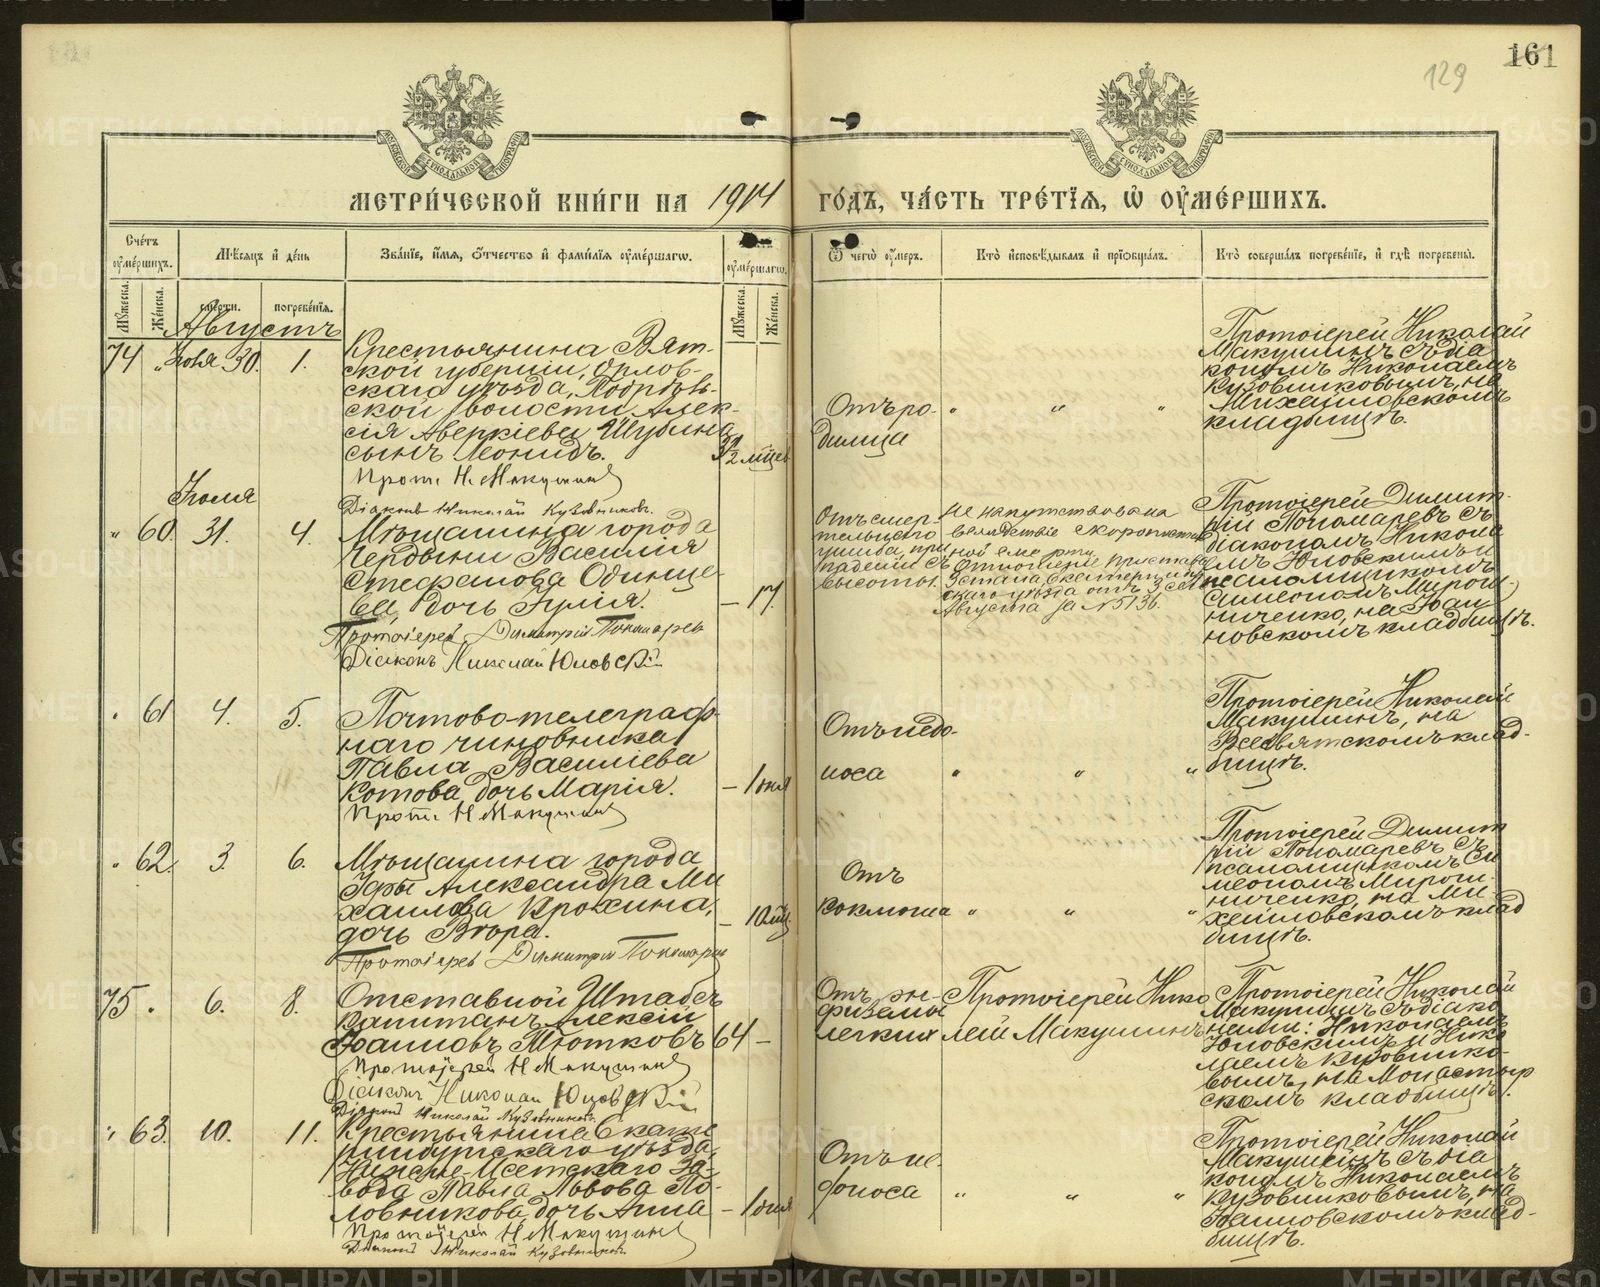 129
161
МЕТРИ́ЧЕСКОЙ КНИ́ГИ НА 1914 ГО́ДЪ, ЧА́СТЬ ТРЕ́ТЇѦ, Ѡ ОУ҆МЕ́РШИХЪ.
Счётъ оу҆ме́ршихъ.
Мѣ́сѧцъ и҆ де́нь
Зва́нїе, и҆́мѧ, ѻ҆́тчество и҆ фами́лїѧ оу҆ме́ршагѡ.
оу҆ме́ршагѡ.
Ѿ чегѡ̀ оу҆́меръ.
Кто̀ и҆сповѣ́дывалъ и҆ прїѡбща́лъ.
Кто̀ соверша́лъ погребе́нїе, и҆ гдѣ̀ погребены̀.
Мꙋ́жеска.
Же́нска.
сме́рти.
погребе́нїѧ.
Мꙋ́жеска.
Же́нска.
Августъ
74 " Іюля 30. 1.
Крестьянина Вят-
ской губерніи, Орлов-
скаго уѣзда,
ской волости Алек-
сія Аверкіева Шубина
сынъ Леонидъ.
Прот. Н. Макушинъ
Діаконъ Николай Кузовниковъ.
3½ мѣсяц
Отъ ро-
димца
" " "
Протоіерей Николай
Макушинъ съ діа
кономъ Николаемъ
Кузовниковымъ, на
Михайловскомъ
кладбищѣ.
Іюля
" 60. 31. 4.
Мѣщанина города
Чердыни Василія
Стефанова Одинце-
ва, дочь Юлія.
Протоіерей Димитрій Пономаревъ
Діаконъ Николай Юловскій
— 17.
Отъ смер-
тельнаго
ушиба, при
паденіи съ
высоты.
Не напутствована
вслѣдствіе скоропостиж
ной смерти.
Отношеніе Пристава
3 стана Екатеринбур
скаго уѣзда отъ 3 сего
Августа за № 5136.
Протоіерей Димит-
рій Пономаревъ съ
діакономъ Никола
емъ Юловскимъ и
псаломщикомъ
Симеономъ Мирош-
ниченко, на Іоан
новскомъ кладбищѣ.
" 61 4. 5.
Почтово-телеграф-
наго чиновника
Павла Василіева
Котова дочь Марія.
Прот. Н. Макушинъ
— 1 дня
Отъ недо-
носа
" " "
Протоіерей Николай
Макушинъ, на
Всесвятскомъ клад-
бищѣ.
" 62. 3. 6.
Мѣщанина города
Уфы Александра Ми
хаилова Крохина,
дочь Вѣра.
Протоіерей Димитрій Пономаревъ
— 10 мѣс
Отъ
коклюша
" " "
Протоіерей Димит
рій Пономаревъ съ
псаломщикомъ Си
меономъ Мирош-
ниченко, на Ми-
хайловскомъ клад
бищѣ.
75 " 6. 8.
Отставной Штабсъ
Капитанъ Алексій
Іоанновъ Мютковъ
Протоіерей Н. Макушинъ
Діаконъ Николай Юловскій
Діаконъ Николай Кузовниковъ
64 —
Отъ эм-
физемы
легкихъ
Протоіерей Нико
лай Макушинъ
Протоіерей Николай
Макушинъ съ діако
нами: Николаемъ
Юловскимъ и Нико
лаемъ Кузовнико-
вымъ, на Монастыр
скомъ кладбищѣ.
" 63. 10. 11.
Крестьянина Екате
ринбургскаго уѣзда,
Нижне-Исетскаго За-
вода Павла Львова По-
ловникова, дочь Анна
Протоіерей Н. Макушинъ
Діаконъ Николай Кузовниковъ
— 1 дня
Отъ не-
доноса
" " "
Протоіерей Николай
Макушинъ съ діа
кономъ Николаемъ
Кузовниковымъ, на
Іоанновскомъ клад-
бищѣ.
METRIKI.GASO-URAL.RU